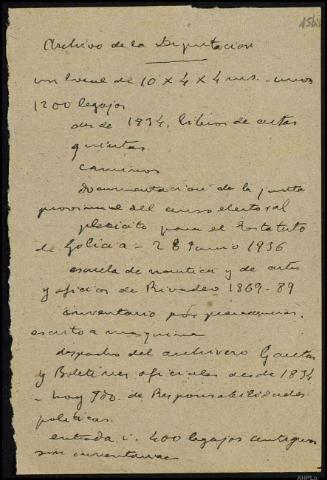 Archivo de la Diputacion
un local de 10 x 4 x 4 ms. - unos
1200 legajos
desde 1834. libros de actas
quintas
caminos
documentacion de la junta
provincial del censo electoral
plebicito para el Estatuto
de Galicia - 28 Junio 1936
escuela de nautica y de artes
y oficios de Rivadeo 1869-89
inventario por
escrito a maquina
despacho del archivero Gacetas
y Boletines oficiales desde 1834
- hoy Jdo. de Responsabilidades
politicas.
entrada i. 400 legajos antiguos
sin inventariar
AHPLu